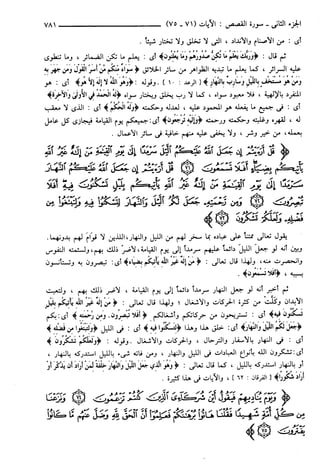 الجزء الثاني - سورة القصص : الآيات (٧١ - ٧٥) ٧٨١
أي : من الأصنام والأنداد ، التي لا تخلق ولا تختار شيئاً .
ثم قال : ﴿وربك يعلم ما تكن صدورهم وما يعلنون﴾ أي : يعلم ما تكن الضمائر ، وما تنطوي
عليه السرائر ، كما يعلم ما تبديه الظواهر من سائر الخلائق ﴿سواء منكم من أسر القول ومن جهر به
ومن هو مستخف بالليل وسارب بالنهار﴾ [الرعد : ١٠] . وقوله : ﴿وهو الله لا إله إلا هو﴾ أي : هو
المنفرد بالإلهية ، فلا معبود سواه ، كما لا رب يخلق ويختار سواه ﴿له الحمد في الأولى والآخرة﴾
أي : في جميع ما يفعله هو المحمود عليه ، لعدله وحكمته ﴿وله الحكم﴾ أي : الذي لا معقب
له ، لقهره وغلبته وحكمته ورحمته ﴿وإليه ترجعون﴾ أي : جميعكم يوم القيامة فيجازي كل عامل
بعمله ، من خير وشر ، ولا يخفى عليه منهم خافية في سائر الأعمال .
قل أرءيتم إن جعل الله عليكم الليل سرمدا إلى يوم القيامة من إله غير الله
يأتيكم بضياء أفلا تسمعون ﴿٧١﴾ قل أرءيتم إن جعل الله عليكم النهار
سرمدا إلى يوم القيامة من إله غير الله يأتيكم بليل تسكنون فيه أفلا
تبصرون ﴿٧٢﴾ ومن رحمته جعل لكم الليل والنهار لتسكنوا فيه ولتبتغوا من
فضله ولعلكم تشكرون ﴿٧٣﴾
يقول تعالى ممتناً على عباده بما سخر لهم من الليل والنهار ، اللذين لا قوام لهم بدونهما .
وبين أنه لو جعل الليل دائماً عليهم سرمداً إلى يوم القيامة ، لأضر ذلك بهم ، ولسئمته النفوس
وانحصرت منه ، ولهذا قال تعالى : ﴿من إله غير الله يأتيكم بضياء﴾ أي : تبصرون به وتستأنسون
بسببه ، ﴿أفلا تسمعون﴾ .
ثم أخبر أنه لو جعل النهار سرمداً دائماً إلى يوم القيامة ، لأضر ذلك بهم ، ولتعبت
الأبدان وكلّت من كثرة الحركات والأشغال ؛ ولهذا قال تعالى : ﴿من إله غير الله يأتيكم بليل
تسكنون فيه﴾ أي : تستريحون من حركاتكم وأشغالكم ﴿أفلا تبصرون . ومن رحمته﴾ أي : بكم
﴿جعل لكم الليل والنهار﴾ أي : خلق هذا وهذا ﴿لتسكنوا فيه﴾ أي : في الليل ﴿ولتبتغوا من فضله﴾
أي : في النهار بالأسفار والترحال ، والحركات والأشغال . وقوله : ﴿ولعلكم تشكرون﴾
أي : تشكرون الله بأنواع العبادات في الليل والنهار ، ومن فاته شيء بالليل استدركه بالنهار ،
أو بالنهار استدركه بالليل ، كما قال تعالى : ﴿وهو الذي جعل الليل والنهار خلفة لمن أراد أن يذكر أو
أراد شكورا﴾ [الفرقان : ٦٢] ، والآيات في هذا كثيرة .
ويوم يناديهم فيقول أين شركاءي الذين كنتم تزعمون ﴿٧٤﴾ ونزعنا
من كل أمة شهيدا فقلنا هاتوا برهانكم فعلموا أن الحق لله وضل عنهم ما كانوا
يفترون ﴿٧٥﴾